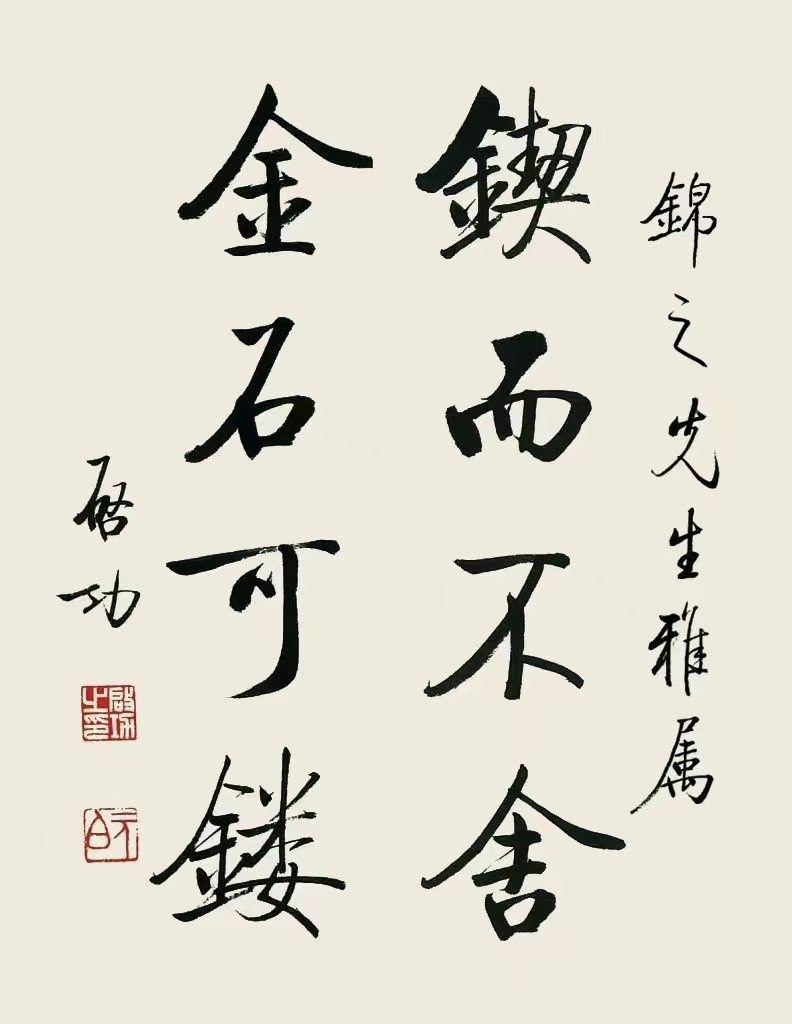 錦之先生雅属
鍥而不舍
金石可鏤
啓功
啟功之印
元白